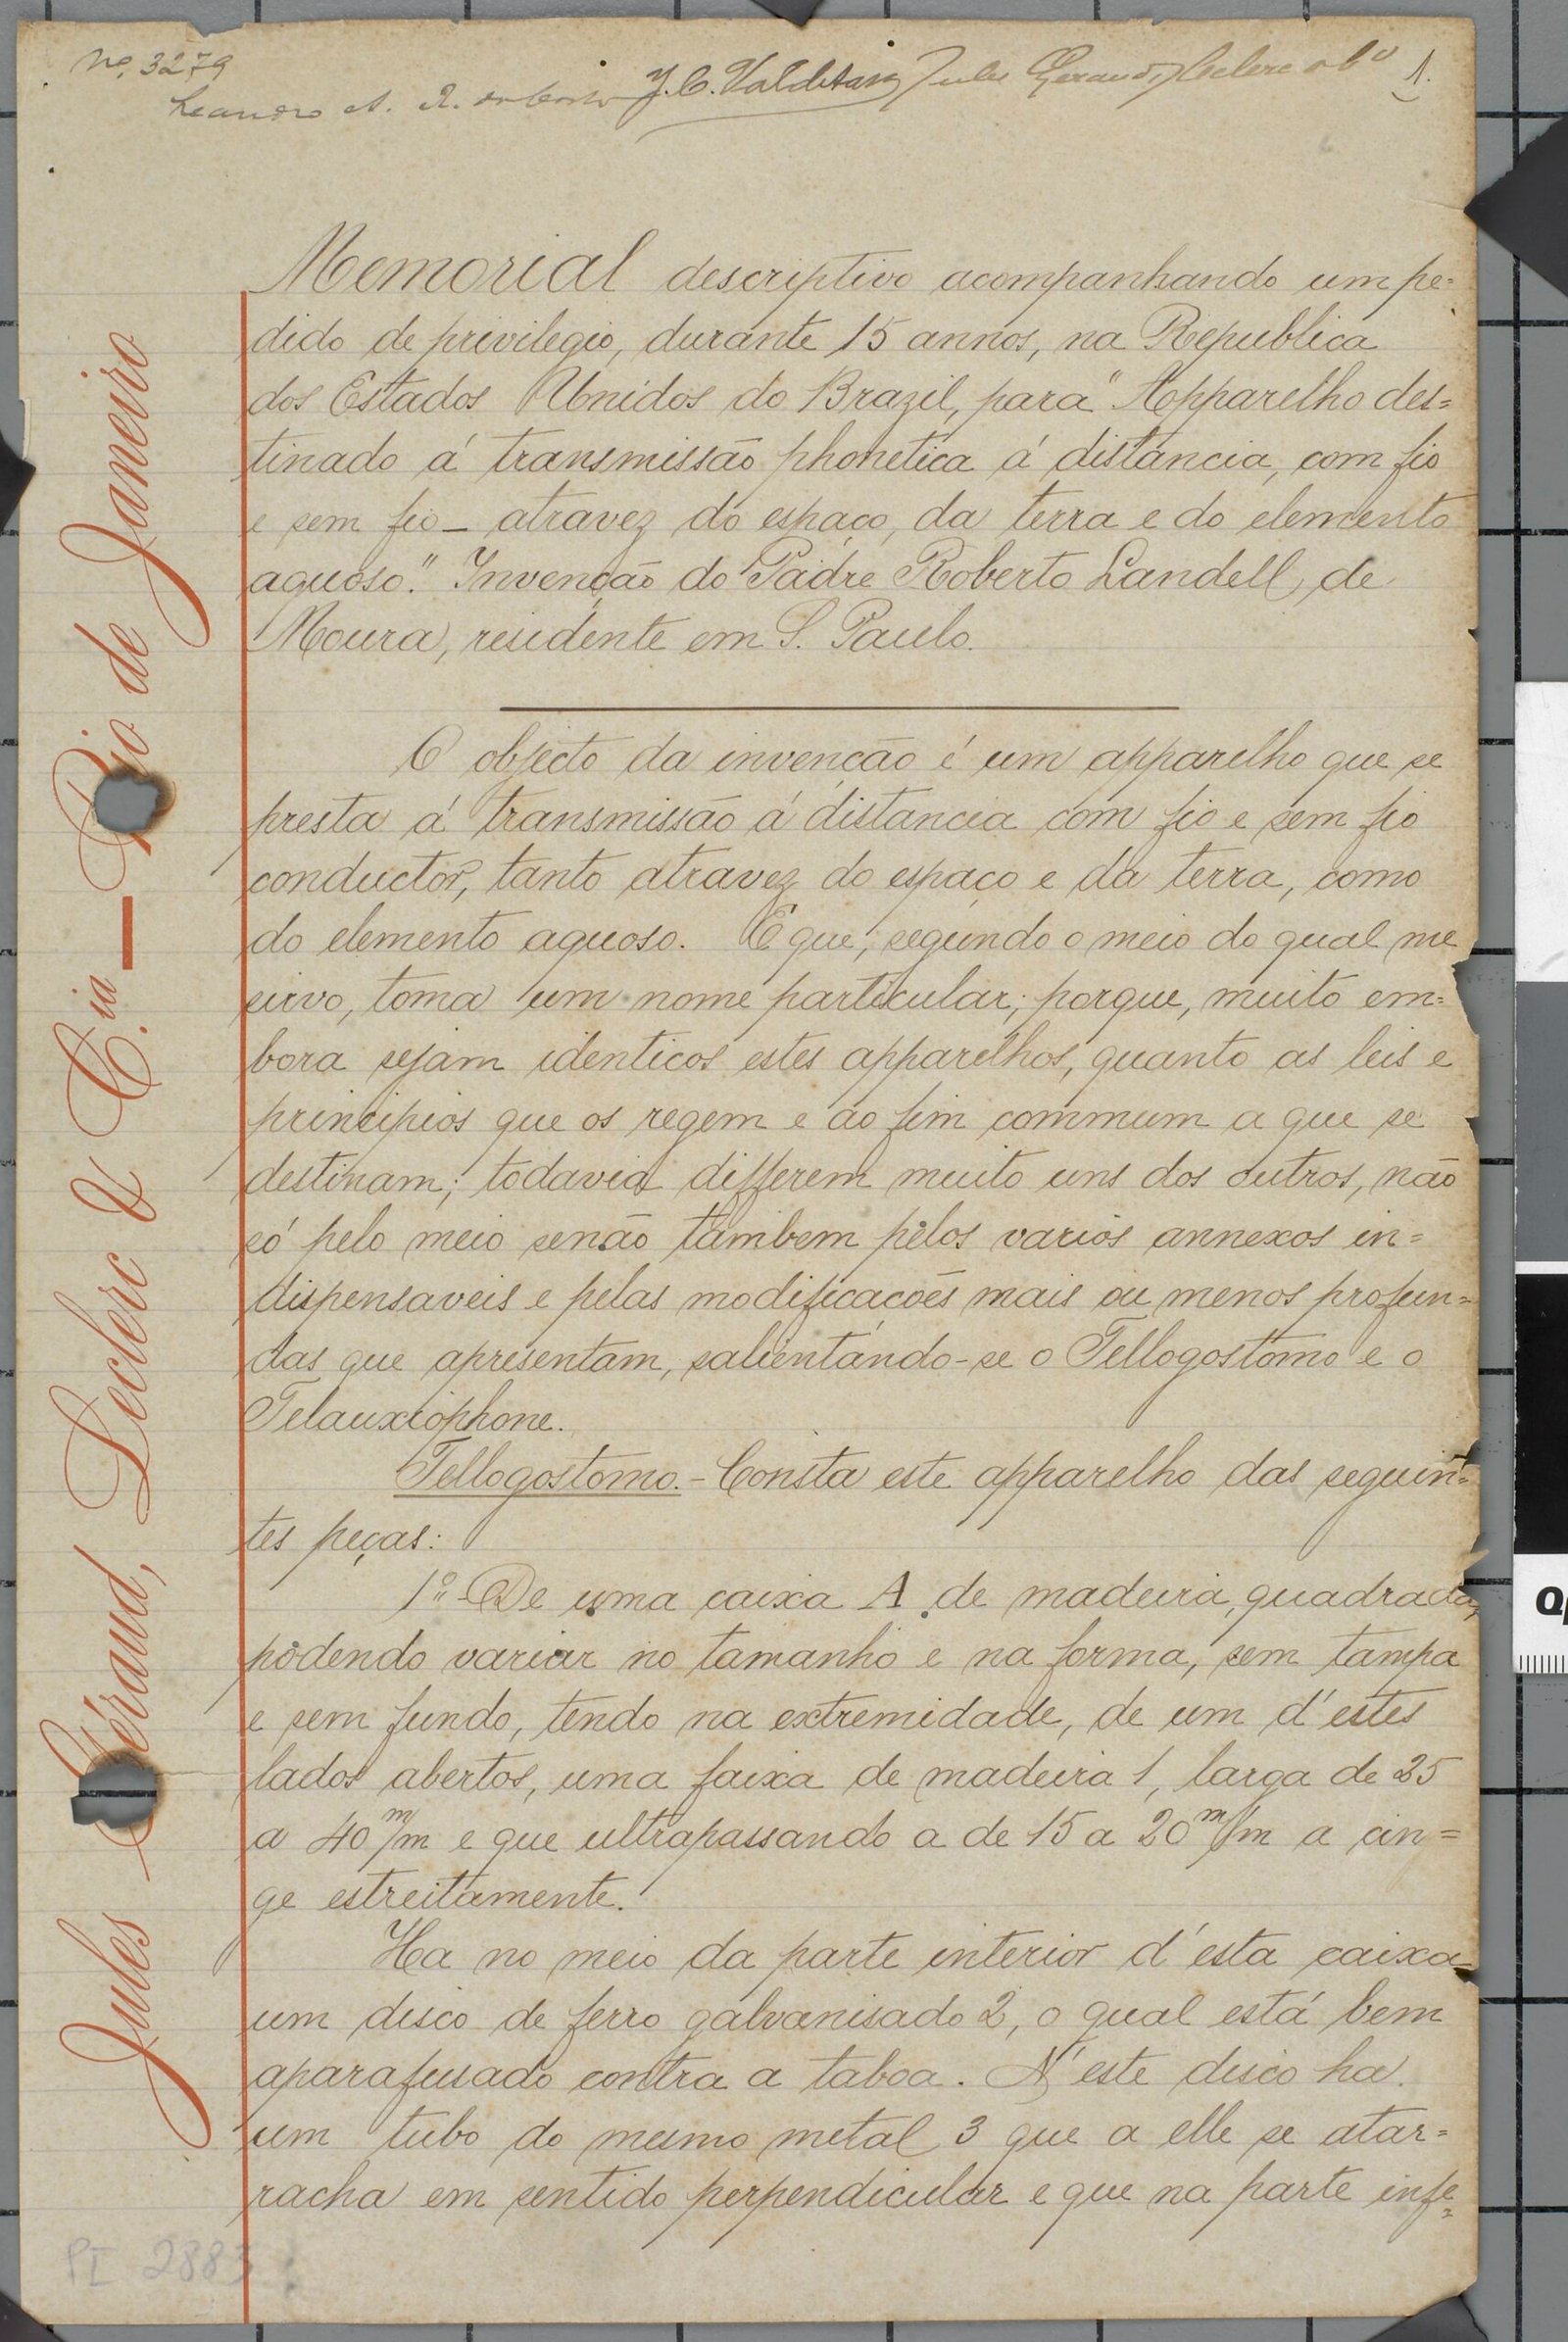 Nº 3279
Leandro A. R. da Costa J. C. Valdetaro Jules Geraud, Leclerc & Cº 1.
Memorial descriptivo acompanhando um pe=
dido de privilegio, durante 15 annos, na Republica
dos Estados Unidos do Brazil, para "Apparelho des=
tinado á transmissão phonetica á distancia, com fio
e sem fio _ atravez do espaço, da terra e do elemento
aquoso." Invenção do Padre Roberto Landell de
Moura, residente em S. Paulo.
O objecto da invenção é um apparelho que se
presta á transmissão á distancia com fio e sem fio
conductor, tanto atravez do espaço e da terra, como
do elemento aquoso. E que, segundo o meio do qual me
sirvo, toma um nome particular; porque, muito em=
bora sejam identicos estes apparelhos, quanto as leis e
principios que os regem e ao fim commum a que se
destinam; todavia differem muito uns dos outros, não
só pelo meio senão tambem pelos varios annexos in=
dispensaveis e pelas modificações mais ou menos profun=
das que apresentam, salientando-se o Tellogostomo e o
Telauxiophone.
Tellogostomo. - Consta este apparelho das seguin=
tes peças:
1º - De uma caixa A de madeira, quadrada,
podendo variar no tamanho e na forma, sem tampa
e sem fundo, tendo na extremidade, de um d'estes
lados abertos, uma faixa de madeira 1, larga de 25
a 40 m/m e que ultrapassando a de 15 a 20 m/m a cin=
ge estreitamente.
Ha no meio da parte interior d'esta caixa
um disco de ferro galvanisado 2, o qual está bem
aparafusado contra a taboa. N'este disco ha
um tubo do mesmo metal 3 que a elle se atar=
racha em sentido perpendicular e que na parte infe=
Jules Géraud, Leclerc & C.ia _ Rio de Janeiro
PI 2883